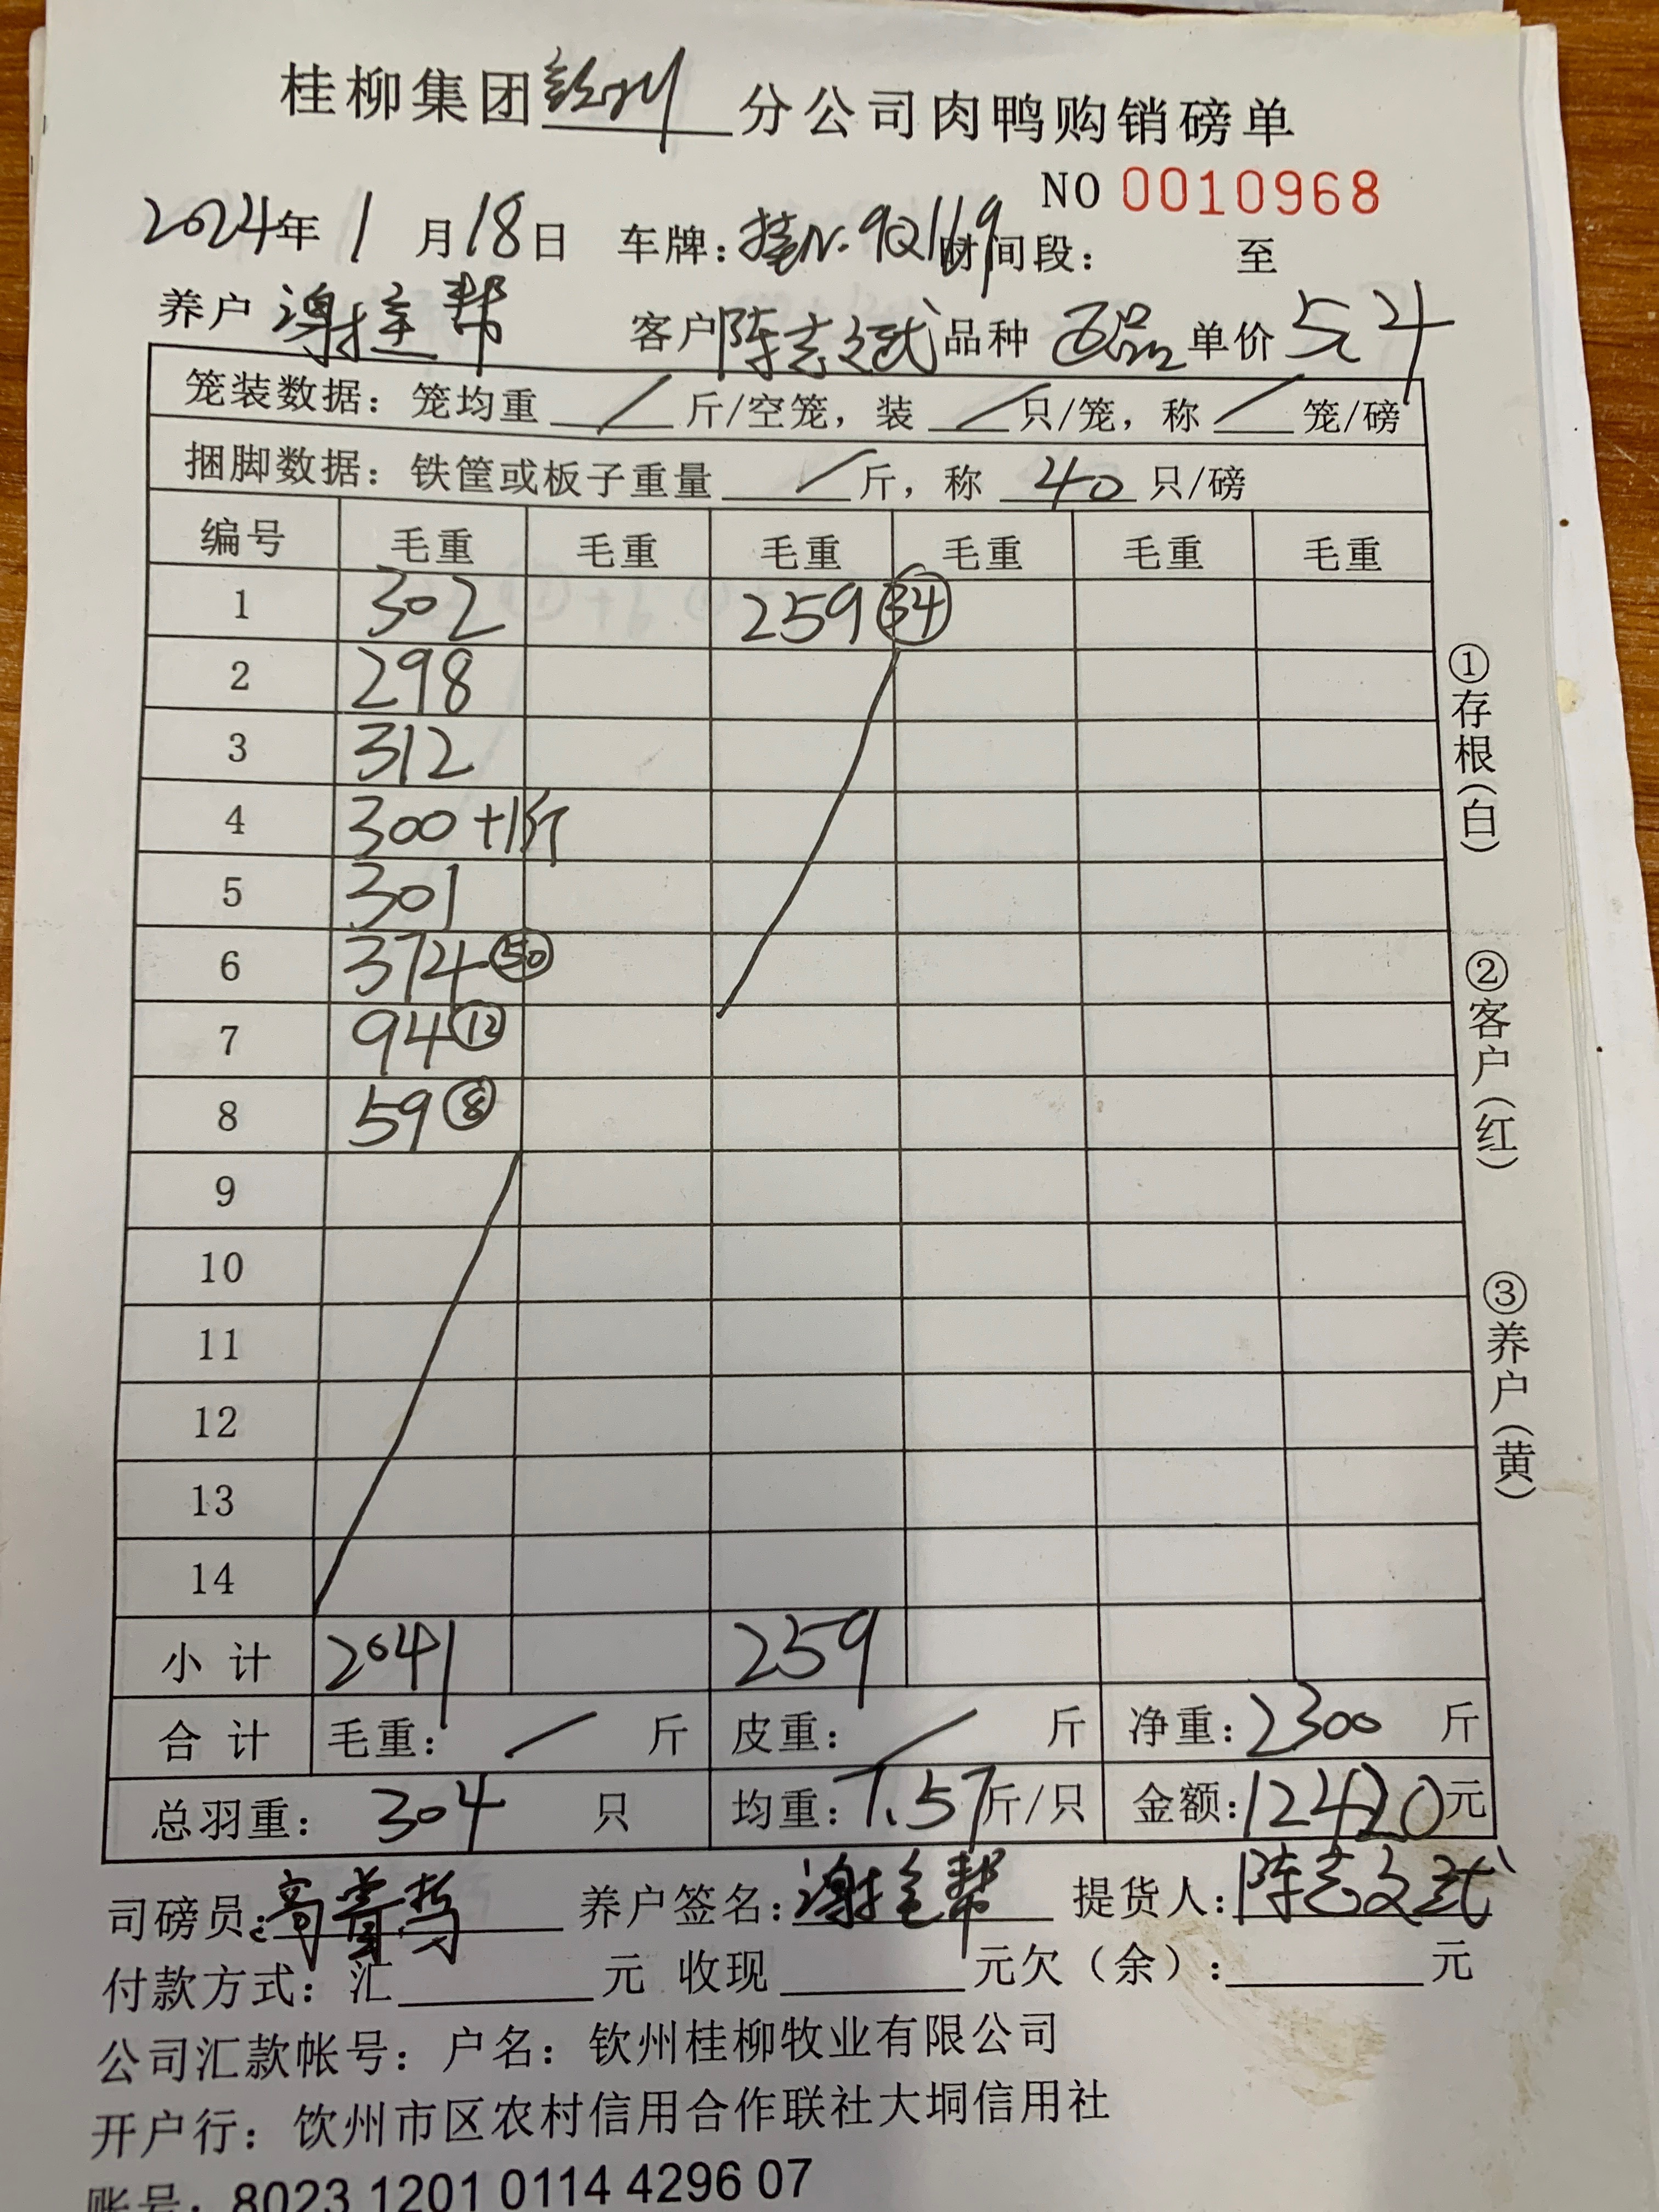 桂柳集团钦州分公司肉鸭购销磅单
NO 0010968
2024年1月18日 车牌:桂N.9Q119 时间段: 至
养户 谢 帮 客户 陈志斌 品种 西品 单价 5.4
笼装数据:笼均重 / 斤/空笼,装 / 只/笼,称 / 笼/磅
捆脚数据:铁筐或板子重量 / 斤,称 40 只/磅
编号 毛重 毛重 毛重 毛重 毛重 毛重
1 302 259 34
2 298
3 312
4 300+1斤
5 301
6 374 50
7 94 12
8 59 8
9
10
11
12
13
14
小计 2041 259
合计 毛重: / 斤 皮重: / 斤 净重:2300 斤
总羽重: 304 只 均重:7.57斤/只 金额:12420元
司磅员: 养户签名:谢 帮 提货人:陈志斌
付款方式:汇 元 收现 元欠(余): 元
公司汇款帐号:户名:钦州桂柳牧业有限公司
开户行:饮州市区农村信用合作联社大垌信用社
账号:8023 1201 0114 4296 07
①存根(白)
②客户(红)
③养户(黄)